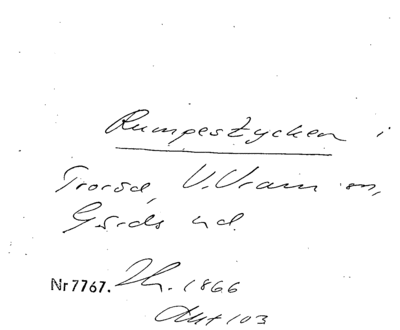 Rumpestycken i
Trorød, V. Vram sn,
Gärds hd.
Nr 7767. Jh. 1866
Akt 103